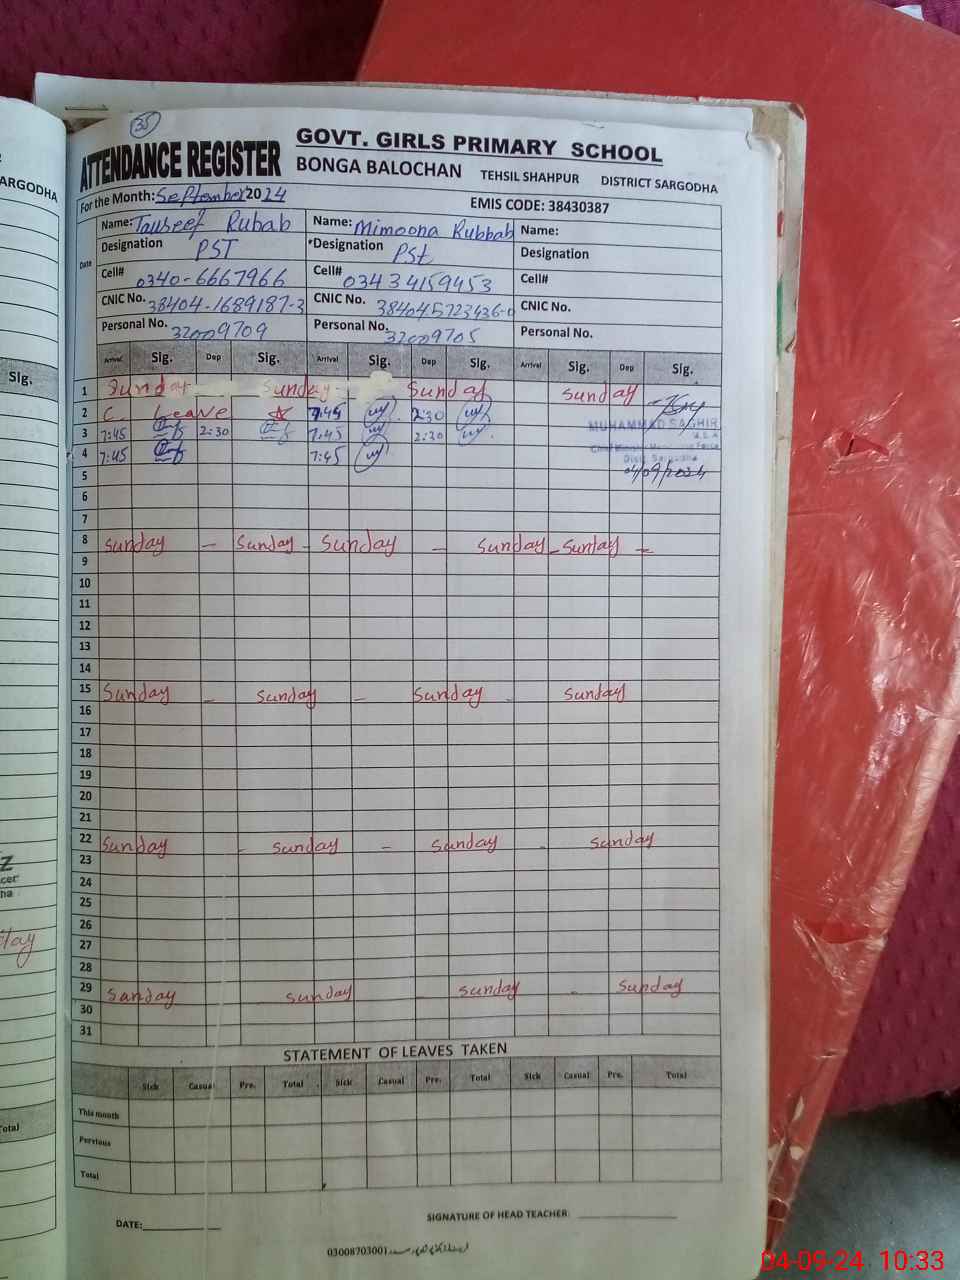 35
GOVT. GIRLS PRIMARY SCHOOL
ATTENDANCE REGISTER BONGA BALOCHAN TEHSIL SHAHPUR DISTRICT SARGODHA
ARGODHA
For the Month: September 2024 EMIS CODE: 38430387
Date
Name: Tauseef Rubab Name: Mimoona Rubbab Name:
Designation PST Designation PSt Designation
Cell# 0340-6667966 Cell# 03434159453 Cell#
CNIC No. 38404-1689187-3 CNIC No. 384045723436-0 CNIC No.
Personal No. 32009709 Personal No. 32009705 Personal No.
Arrival Sig. Dep Sig. Arrival Sig. Dep Sig. Arrival Sig. Dep Sig.
Sig.
1 Sunday Sunday Sunday Sunday
2 C. Leave 7:45 2:30
3 7:45 2:30 7:45 2:30 MUHAMMAD SAGHIR
4 7:45 7:45
Distt. Sargodha
5 04/09/2024
6
7
8 Sunday - Sunday - Sunday - Sunday - Sunday -
9
10
11
12
13
14
15 Sunday - Sunday - Sunday - Sunday
16
17
18
19
20
21
22 Sunday - Sunday - Sunday - Sunday
23
24
25
26
27
28
29 Sanday Sunday - Sunday - Sunday
30
31
STATEMENT OF LEAVES TAKEN
Sick Casual Pre. Total Sick Casual Pre. Total Sick Casual Pre. Total
This month
Pervious
Total
Total
DATE: SIGNATURE OF HEAD TEACHER:
03008703001
04-09-24 10:33